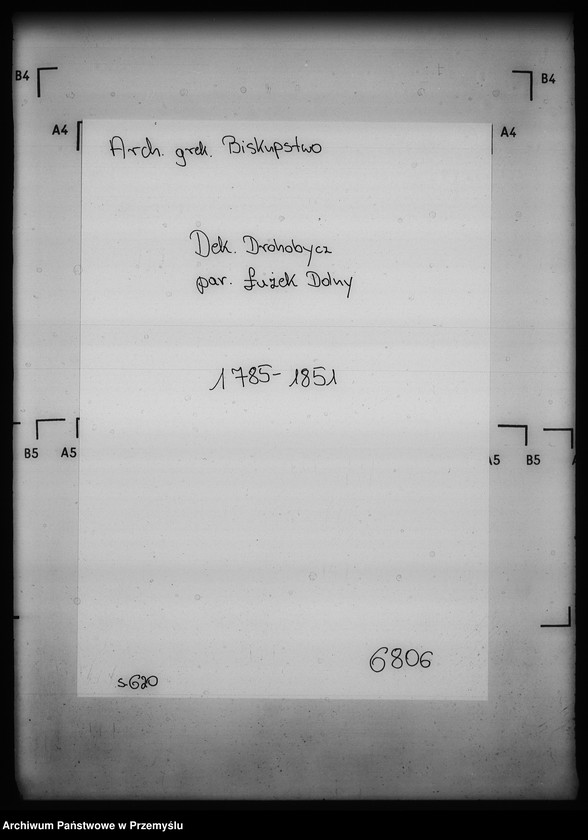 B4
B4
A4
A4
Arch. grek. Biskupstwo
Dek. Drohobycz
par. Łużek Dolny
1785-1851
B5
A5
A5
B5
A
6806
s620
Archiwum Państwowe w Przemyślu